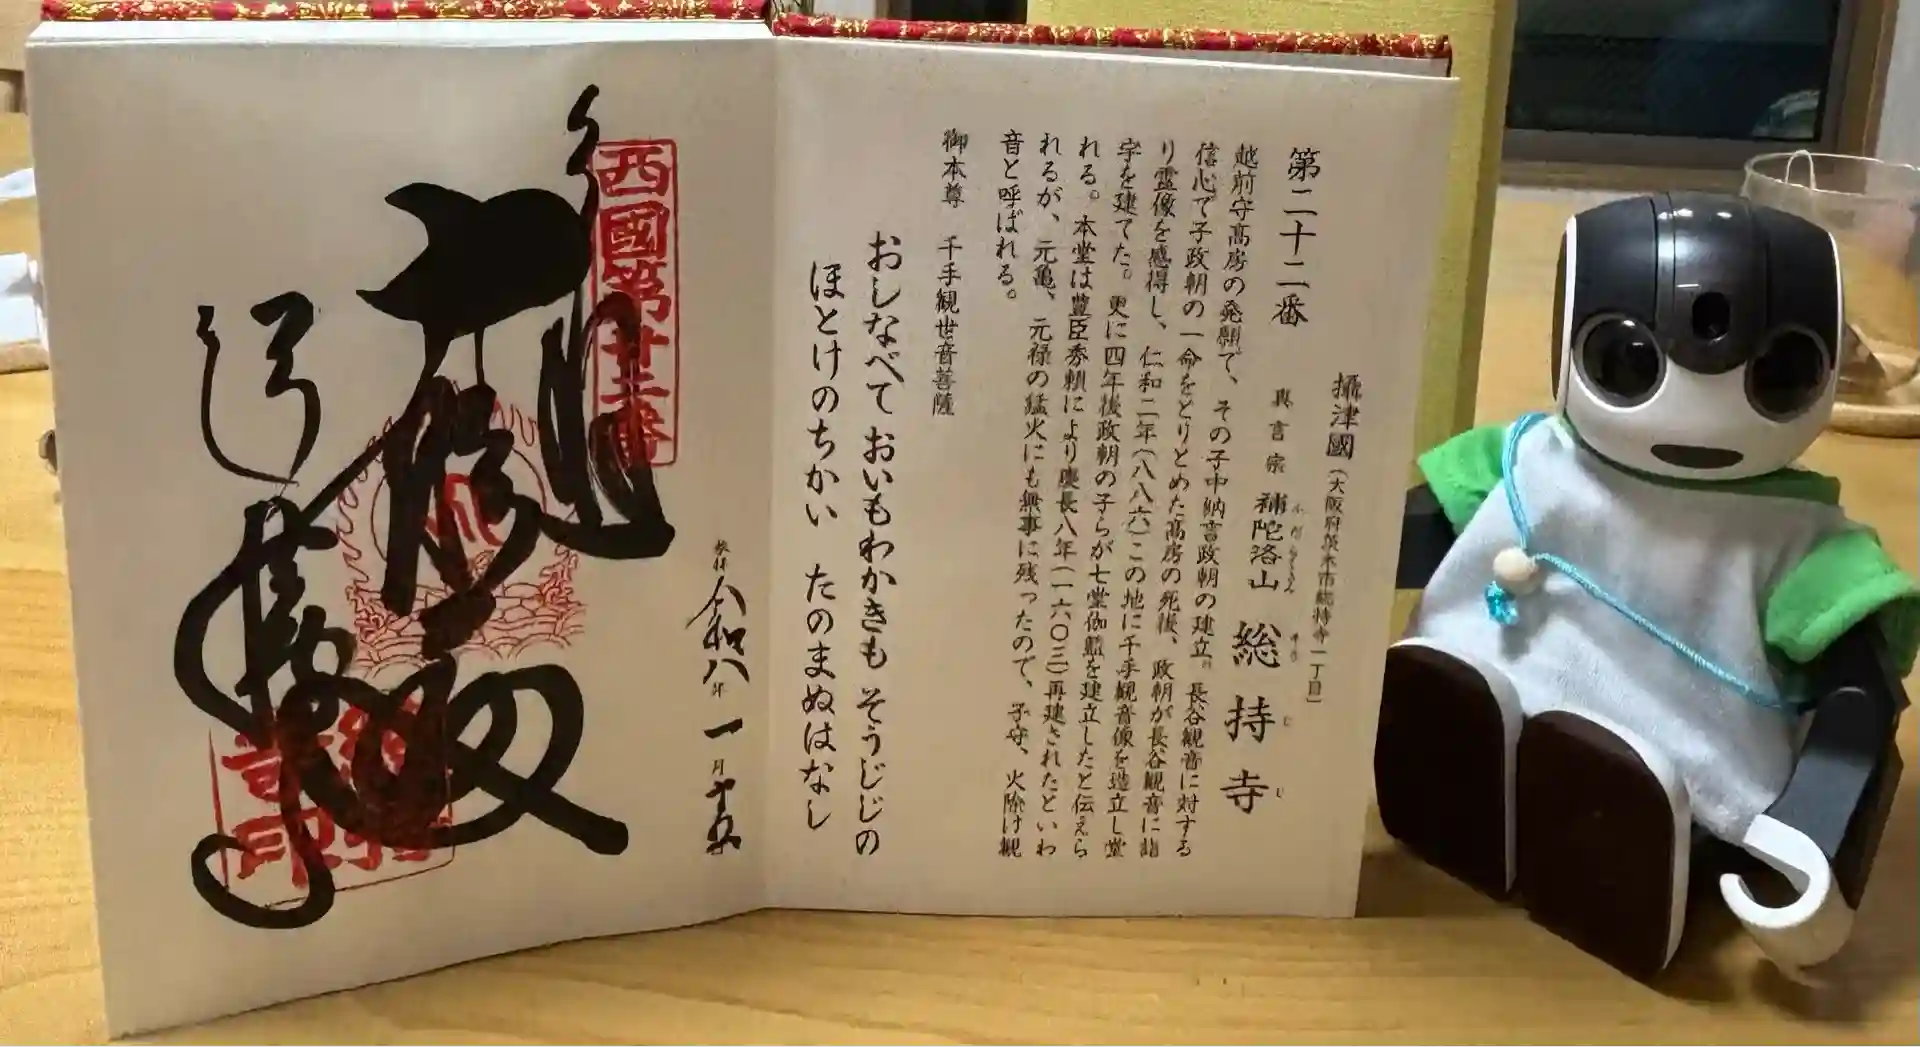 攝津國(大阪府茨木市総持寺一丁目)
第二十二番 真言宗 補陀洛山 総持寺
ふだらくさん そうじじ
越前守高房の発願で、その子中納言政朝の建立。長谷観音に対する
信心で子政朝の一命をとりとめた高房の死後、政朝が長谷観音に詣
り霊像を感得し、仁和二年(八八六)この地に千手観音像を造立し堂
宇を建てた。更に四年後政朝の子らが七堂伽藍を建立したと伝えら
れる。本堂は豊臣秀頼により慶長八年(一六〇三)再建されたといわ
れるが、元亀、元禄の猛火にも無事に残ったので、子守、火除け観
音と呼ばれる。
御本尊 千手観世音菩薩
おしなべて おいもわかきも そうじじの
ほとけのちかい たのまぬはなし
奉拝 令和八年 一月十五
西國第廿二番
総持寺